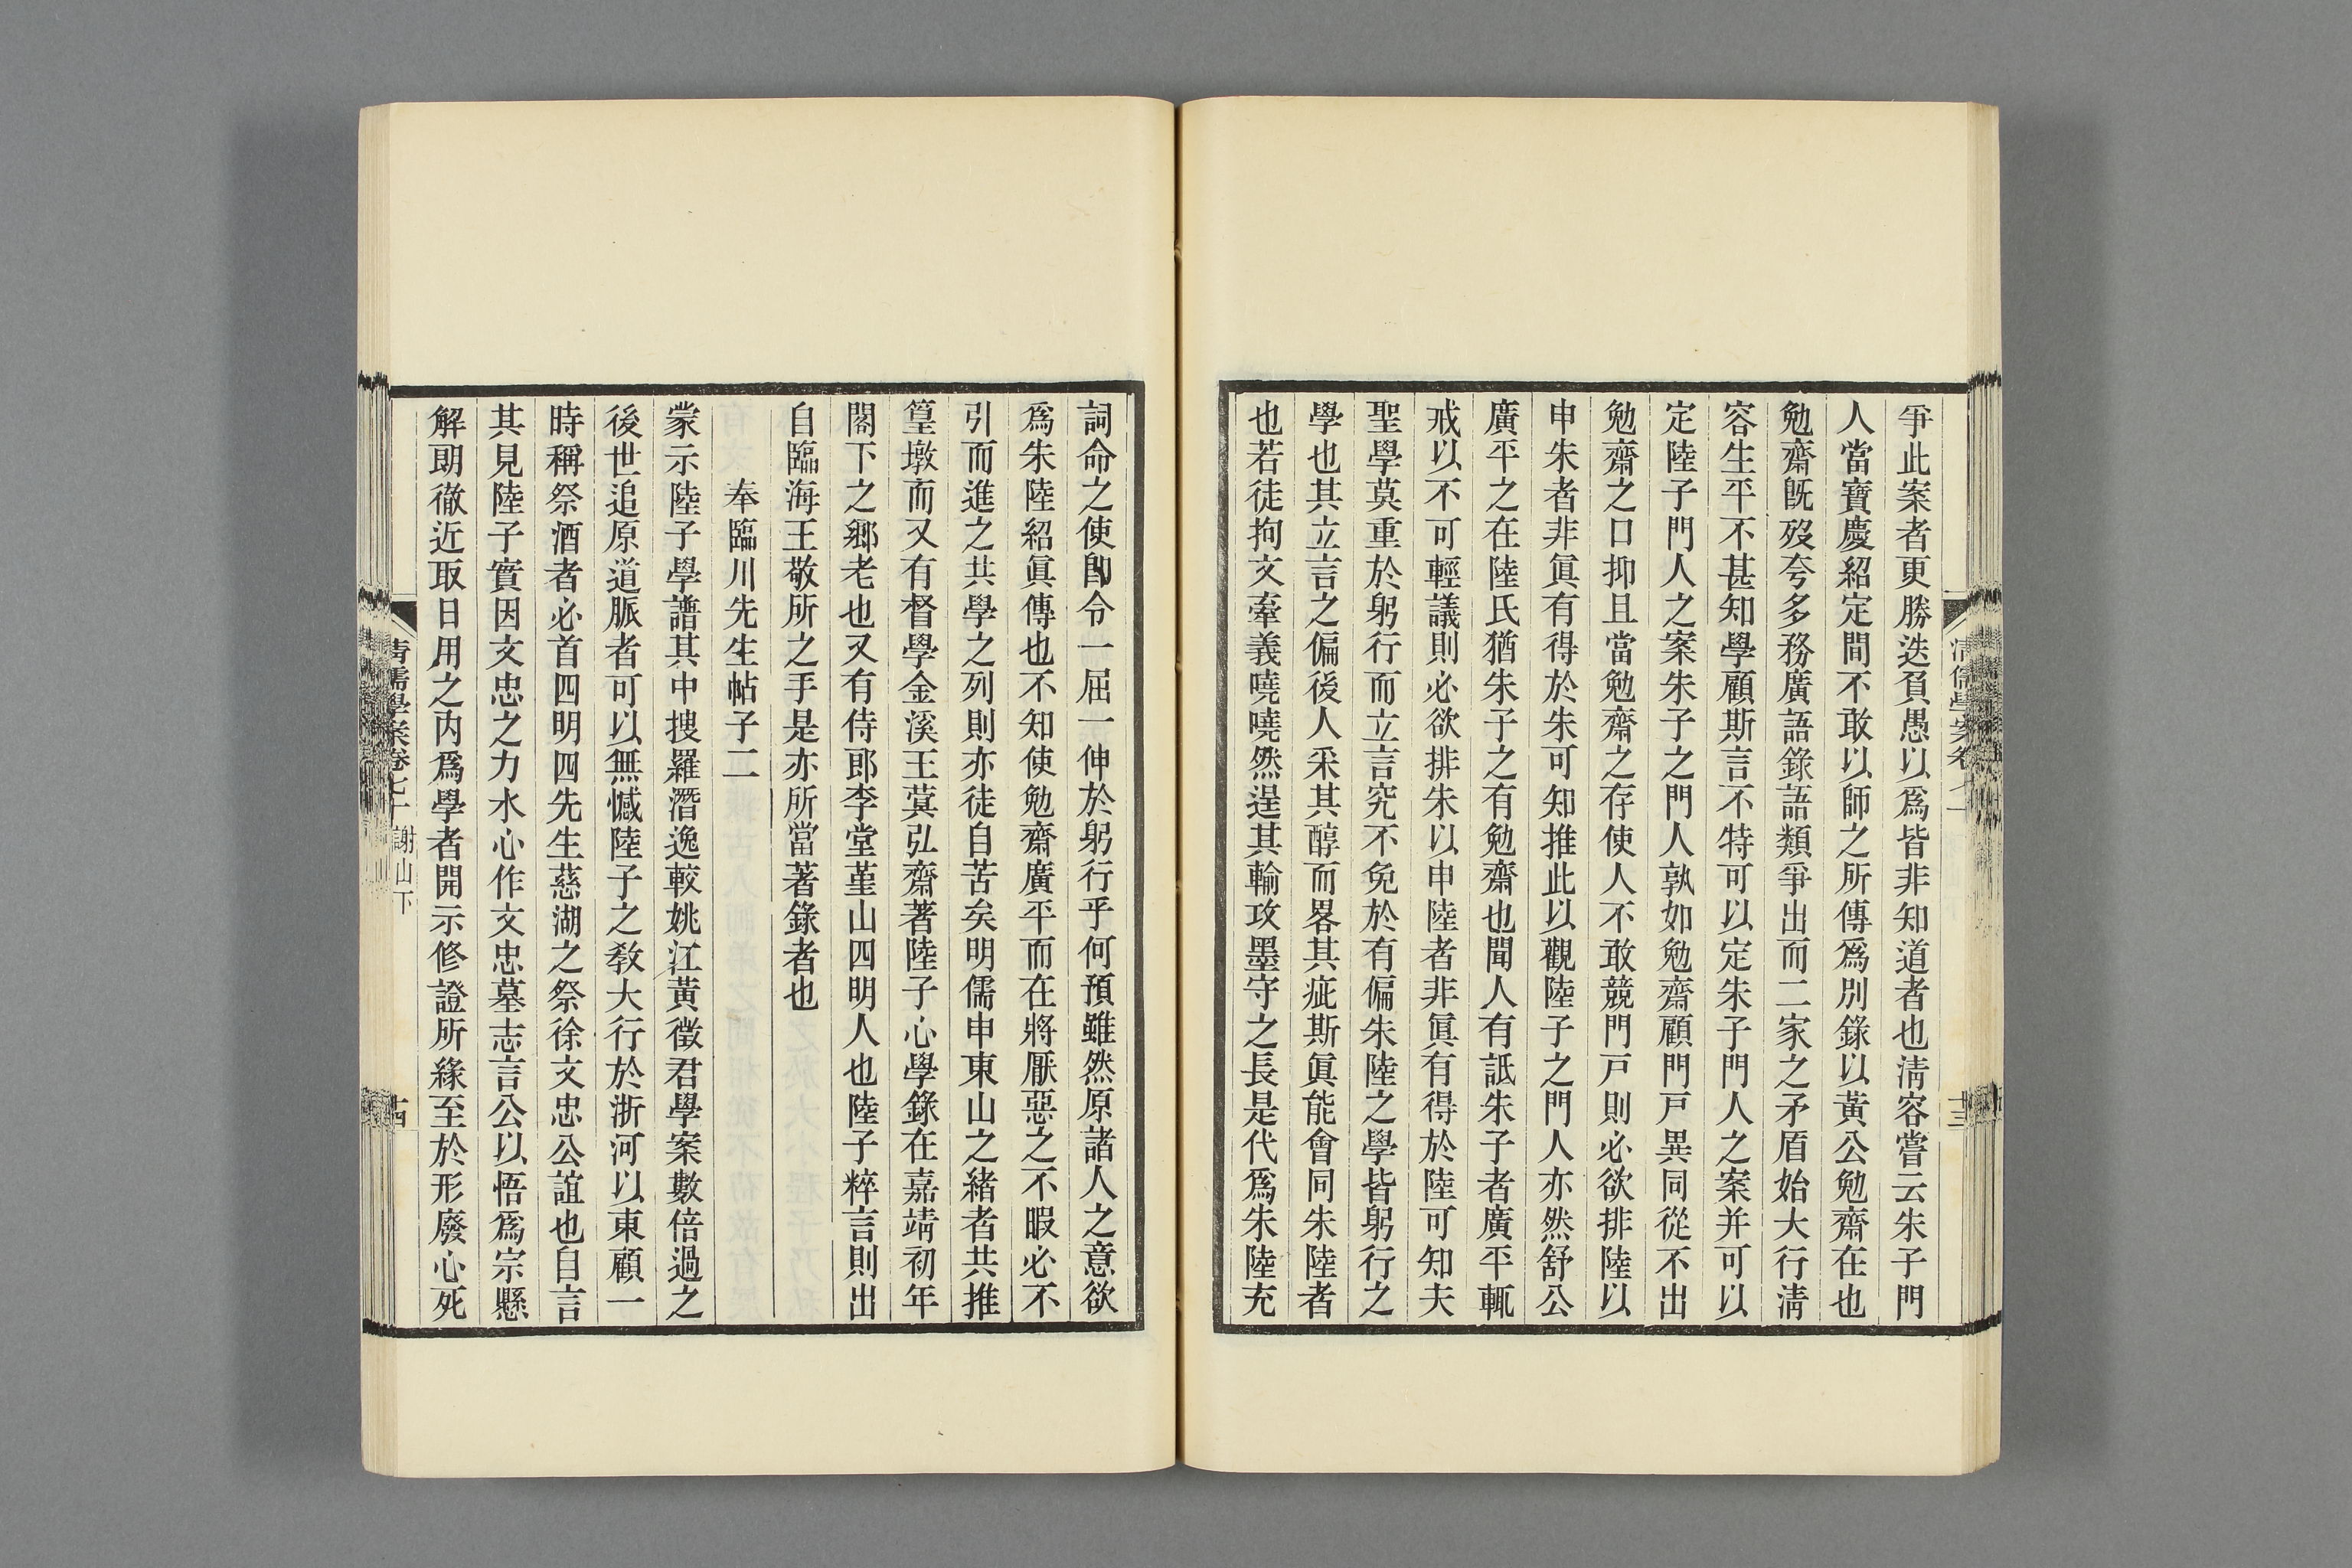 爭此案者更勝迭負愚以爲皆非知道者也淸容嘗云朱子門
人當寶慶紹定間不敢以師之所傳爲別錄以黃公勉齋在也
勉齋旣歿夸多務廣語錄語類爭出而二家之矛盾始大行淸
容生平不甚知學顧斯言不特可以定朱子門人之案并可以
定陸子門人之案朱子之門人孰如勉齋顧門戸異同從不出
勉齋之口抑且當勉齋之存使人不敢競門戸則必欲排陸以
申朱者非眞有得於朱可知推此以觀陸子之門人亦然舒公
廣平之在陸氏猶朱子之有勉齋也聞人有詆朱子者廣平輒
戒以不可輕議則必欲排朱以申陸者非眞有得於陸可知夫
聖學莫重於躬行而立言究不免於有偏朱陸之學皆躬行之
學也其立言之偏後人采其醇而畧其疵斯眞能會同朱陸者
也若徒拘文牽義嘵嘵然逞其輸攻墨守之長是代爲朱陸充
詞命之使卽令一屈一伸於躬行乎何預雖然原諸人之意欲
爲朱陸紹眞傳也不知使勉齋廣平而在將厭惡之不暇必不
引而進之共學之列則亦徒自苦矣明儒申東山之緒者共推
篁墩而又有督學金溪王蓂弘齋著陸子心學錄在嘉靖初年
閣下之鄉老也又有侍郎李堂堇山四明人也陸子粹言則出
自臨海王敬所之手是亦所當著錄者也
奉臨川先生帖子二
蒙示陸子學譜其中搜羅潛逸較姚江黃徵君學案數倍過之
後世追原道脈者可以無憾陸子之敎大行於浙河以東顧一
時稱祭酒者必首四明四先生慈湖之祭徐文忠公誼也自言
其見陸子實因文忠之力水心作文忠墓志言公以悟爲宗懸
解朗徹近取日用之內爲學者開示修證所緣至於形廢心死
清儒學案卷七十 謝山下 十四